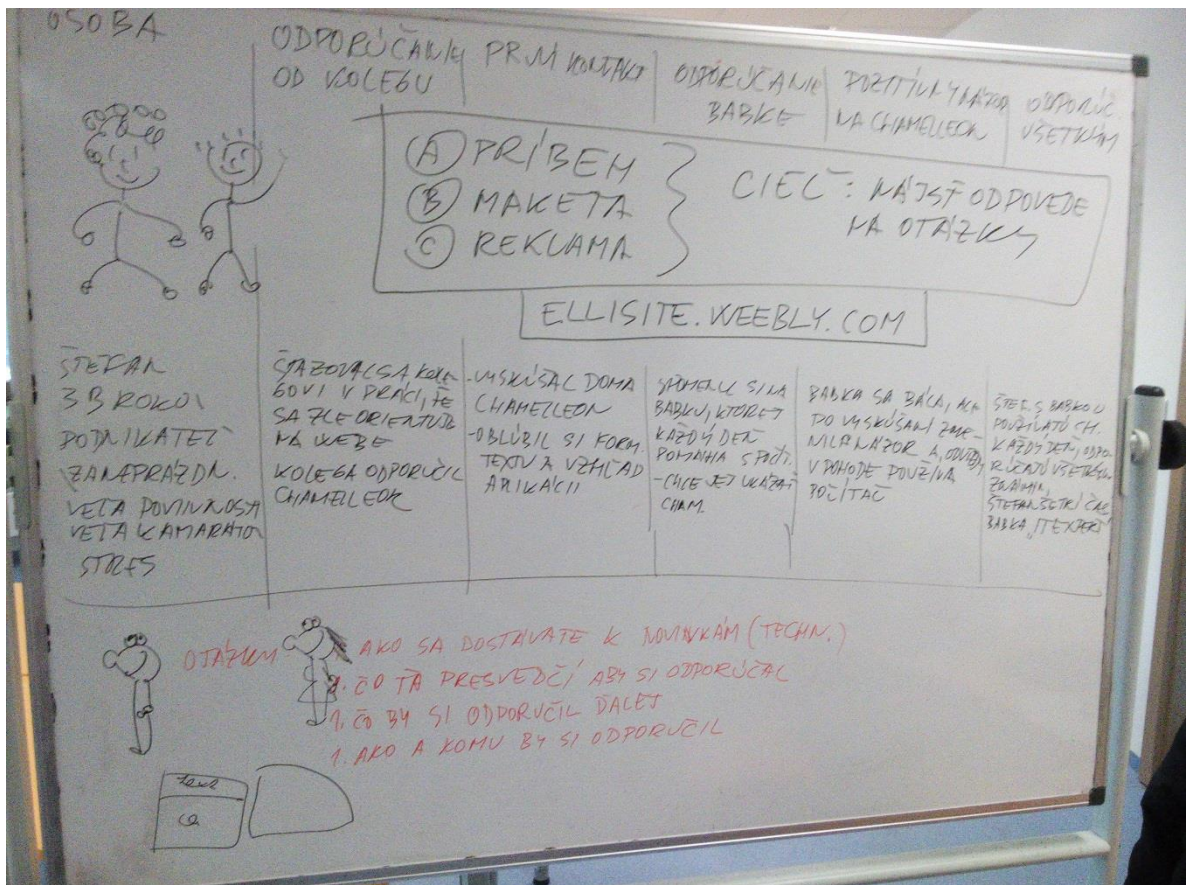 OSOBA
ODPORÚČANIE
OD KOLEGU
PRVÝ KONTAKT
ODPORÚČANIE
BABKE
POZITÍVNY NÁZOR
NA CHAMELLEON
ODPORÚČ.
VŠETKÝM
A PRÍBEH
B MAKETA
C REKLAMA
CIEĽ: NÁJSŤ ODPOVEDE
NA OTÁZKY
ELLISITE.WEEBLY.COM
ŠTEFAN
38 ROKOV
PODNIKATEĽ
ZANEPRÁZDN.
VEĽA POVINNOSTÍ
VEĽA KAMARÁTOV
STRES
SŤAŽOVAL SA KOLE-
GOVI V PRÁCI, ŽE
SA ZLE ORIENTUJE
NA WEBE
KOLEGA ODPORUČIL
CHAMELLEON
-VYSKÚŠAL DOMA
CHAMELLEON
-OBĽÚBIL SI FORM.
TEXTU A VZHĽAD
APLIKÁCII
SPOMENUL SI NA
BABKU, KTOREJ
KAŽDÝ DEŇ
POMÁHA S POČÍT.
-CHCE JEJ UKÁZAŤ
CHAM.
BABKA SA BÁLA, ALE
PO VYSKÚŠANÍ ZME-
NILA NÁZOR A ODVTEDY
V POHODE POUŽÍVA
POČÍTAČ
ŠTEF. S BABKOU
POUŽÍVAJÚ CH.
KAŽDÝ DEŇ, ODPO-
RÚČAJÚ VŠETKÝM
ZNÁMYM,
ŠTEFAN ŠETRÍ ČAS
BABKA "IT EXPERT"
OTÁZKY
AKO SA DOSTÁVATE K NOVINKÁM (TECHN.)
1. ČO ŤA PRESVEDČÍ ABY SI ODPORÚČAL
1. ČO BY SI ODPORUČIL ĎALEJ
1. AKO A KOMU BY SI ODPORUČIL